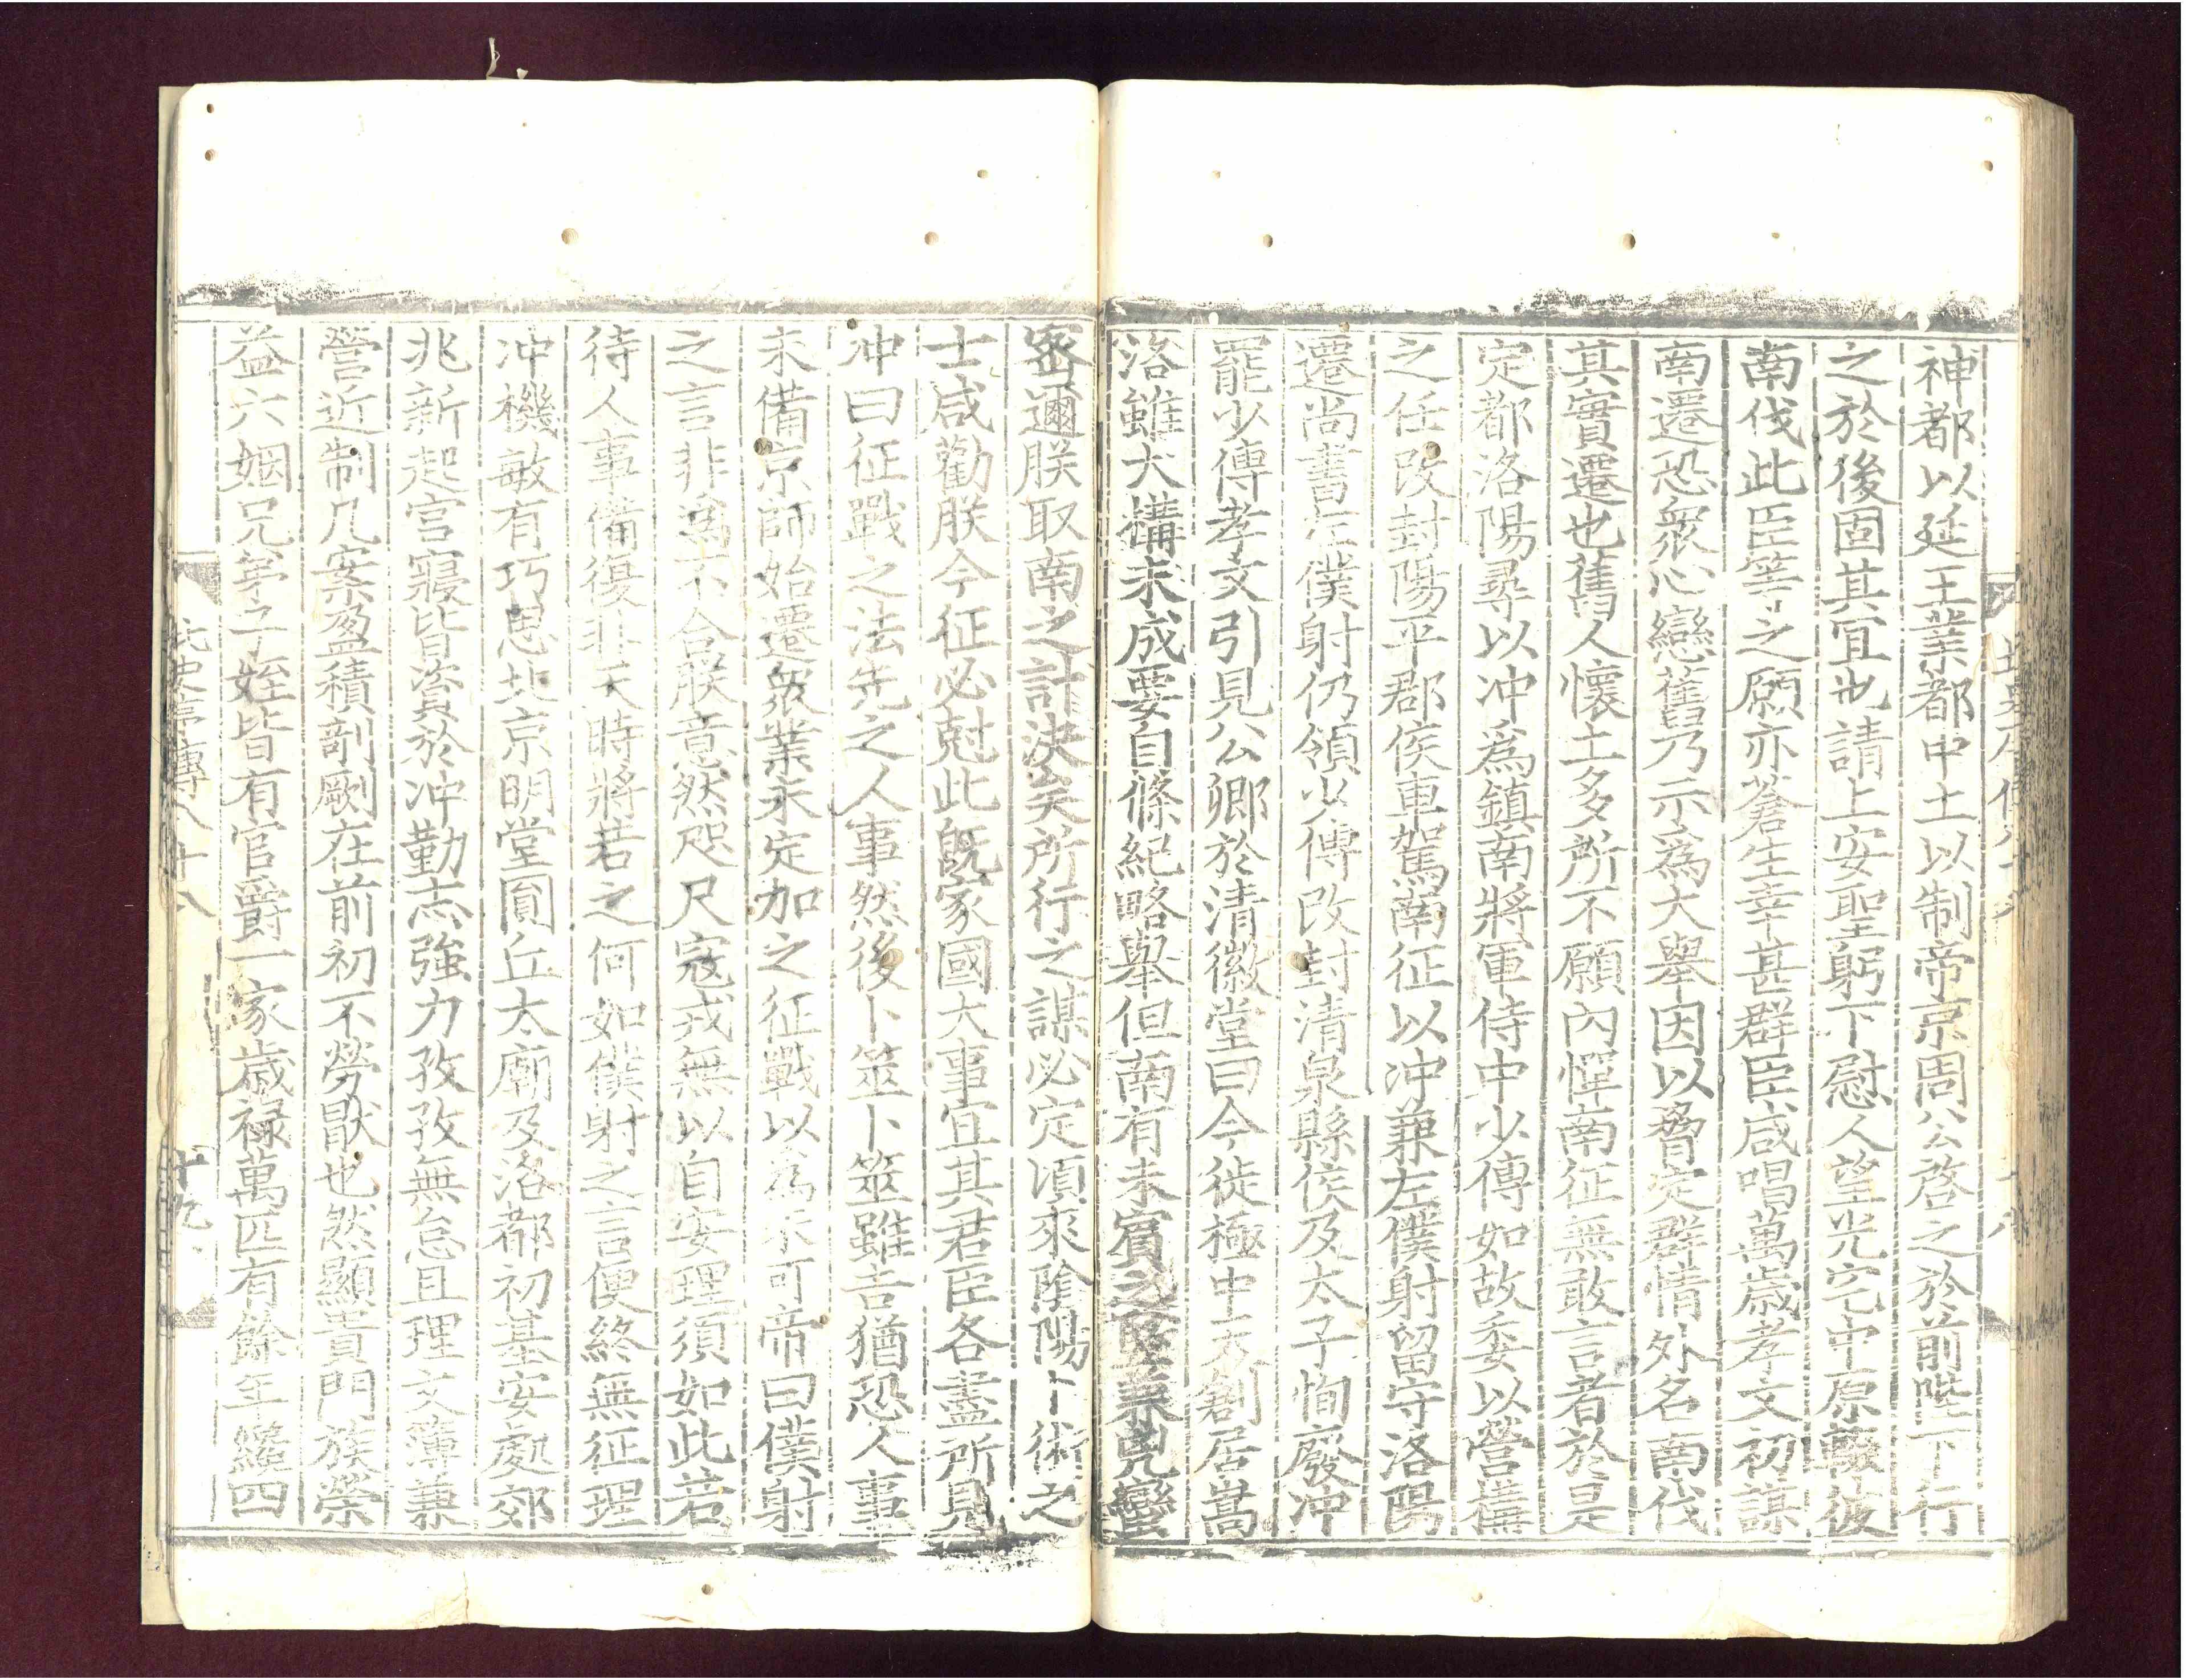 神都以延王業都中土以制帝京周公啓之於前陛下行
之於後固其宜也請上安聖躬下慰人望光宅中原輟彼
南伐此臣等之願亦蒼生幸甚群臣咸唱萬歳孝文初謀
南遷恐衆心戀舊乃示爲大舉因以脅定群情外名南伐
其實遷也舊人懷土多所不願內憚南征無敢言者於是
定都洛陽尋以冲爲鎮南將軍侍中少傅如故委以營構
之任改封陽平郡侯車駕南征以冲兼左僕射留守洛陽
遷尚書左僕射仍領少傅改封清泉縣侯及太子恂廢冲
罷少傅孝文引見公卿於清徽堂曰今徙極中天創居嵩
洛雖大構未成要自條紀略舉但南有未賓之竪兼兇蠻
密邇朕取南之計決矣所行之謀必定頃來陰陽卜術之
士咸勸朕今征必尅此旣家國大事宜其君臣各盡所見
冲曰征戰之法先之人事然後卜筮卜筮雖吉猶恐人事
未備京師始遷衆業未定加之征戰以爲不可帝曰僕射
之言非爲不合朕意然咫尺寇戎無以自安理須如此若
待人事備復非天時將若之何如僕射之言便終無征理
冲機敏有巧思北京明堂圓丘太廟及洛都初基安處郊
兆新起宫寢皆資於冲勤志強力孜孜無怠旦理文簿兼
營近制几案盈積剖劂在前初不勞猒也然顯貴門族榮
益六姻兄弟子姪皆有官爵一家歳禄萬匹有餘年纔四
北史帝傳八十八 十九